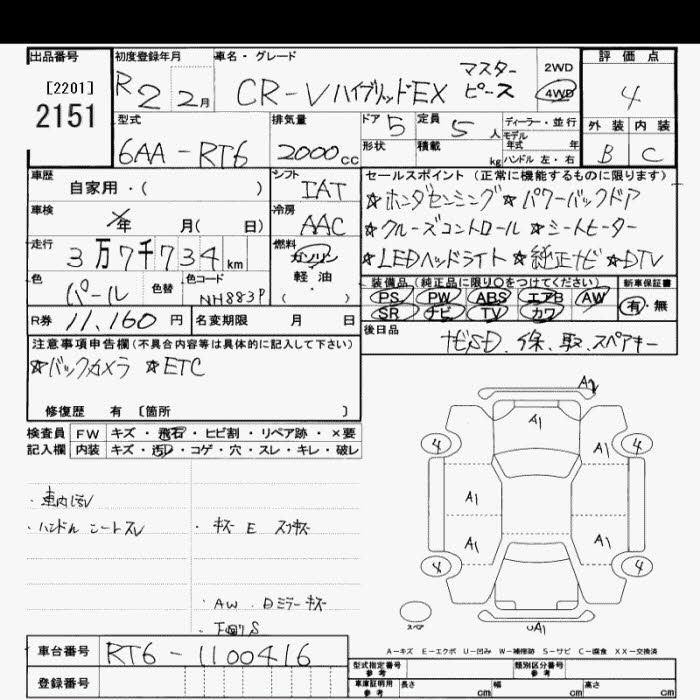 出品番号
[2201]
2151
初度登録年月
R2 2月
車名・グレード
CR-VハイブリッドEX マスターピース
2WD
4WD
評価点
4
外装 内装
B C
型式
6AA-RT6
排気量
2000cc
ドア 5
定員 5人
形状
積載 kg
ディーラー・並行
モデル年式 年
ハンドル 左・右
車歴
自家用・( )
シフト
IAT
車検
年 月( 日)
冷房
AAC
走行
3万7千734km
燃料
ガソリン
軽・油
( )
色
パール
色替
色コード
NH883P
R券 11,160円
名変期限 月 日
セールスポイント(正常に機能するものに限ります)
☆ホンダセンシング☆パワーバックドア
☆クルーズコントロール☆シートヒーター
☆LEDヘッドライト☆純正ナビ☆DTV
装備品(純正品に限り○をつけてください)
PS PW ABS エアB AW
SR ナビ TV カワ
新車保証書
有・無
後日品
ナビSD、保、取、スペアキー
注意事項申告欄(不具合内容等は具体的に記入して下さい)
☆バックカメラ ☆ETC
修復歴 有 [箇所 ]
検査員記入欄
FW キズ・飛石・ヒビ割・リペア跡・×要
内装 キズ・汚レ・コゲ・穴・スレ・キレ・破レ
・ハンドル シートスレ
・キズ E スリキズ
・AW、Dミラーキズ
・下廻りS
A2
A1
4 4
A1 A1
A1 A1
4 4
スペア
A1
A-キズ E-エクボ U-凹み W-補修跡 S-サビ C-腐食 XX-交換済
車台番号 RT6-1100416
登録番号
型式指定番号 参考
類別区分番号 参考
車庫証明用 参考 長さ cm 幅 cm 高さ cm